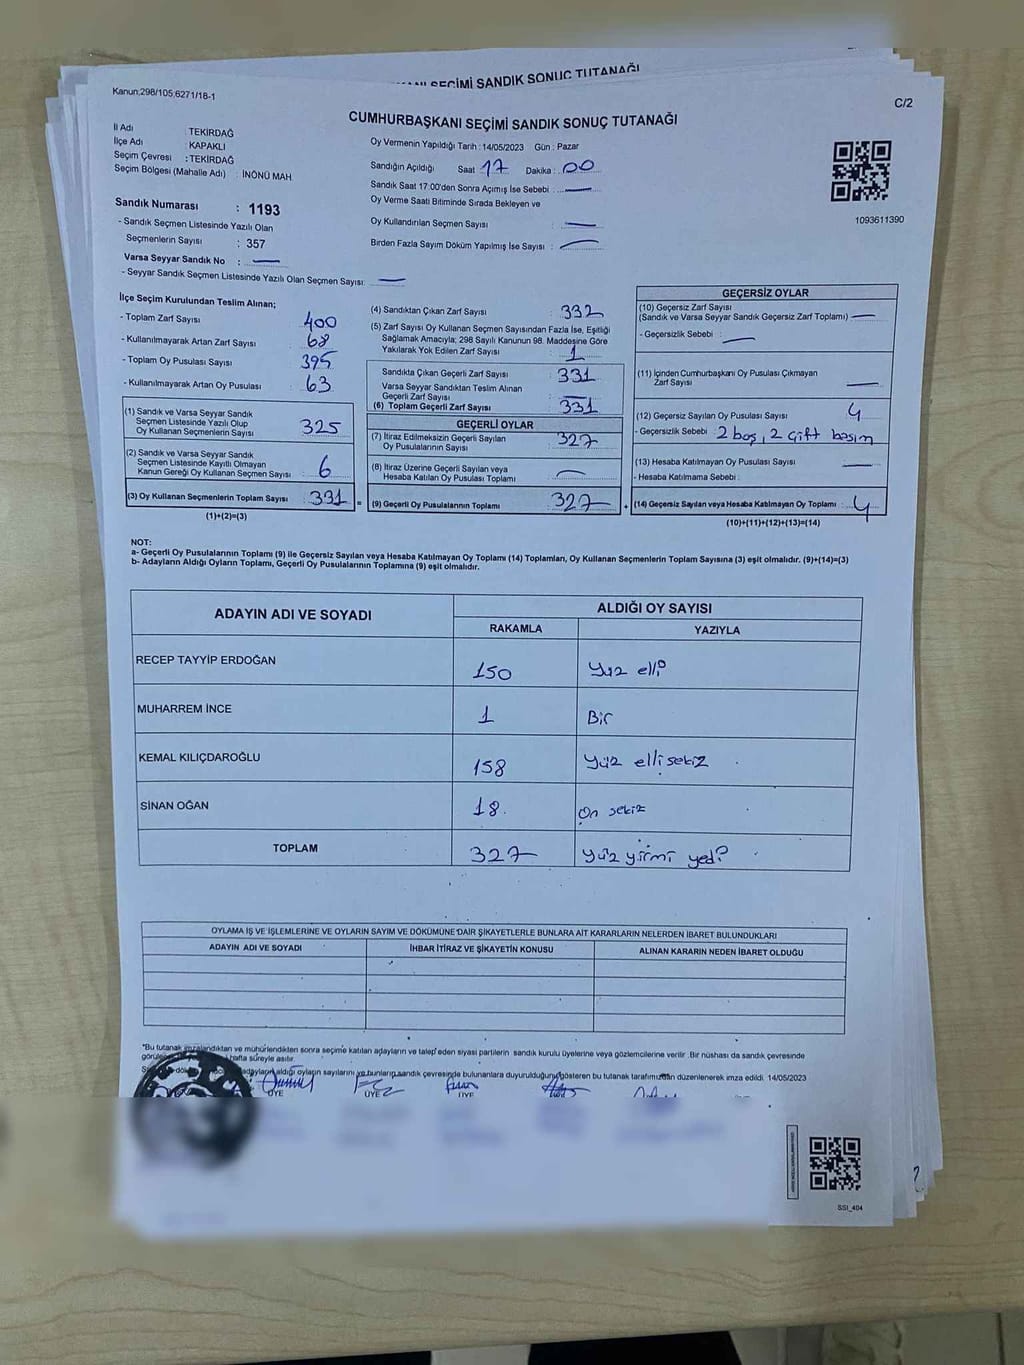 CUMHURBAŞKANI SEÇİMİ SANDIK SONUÇ TUTANAĞI
Kanun.298/105,6271/18-1
C/2
CUMHURBAŞKANI SEÇİMİ SANDIK SONUÇ TUTANAĞI
İl Adı : TEKİRDAĞ
İlçe Adı : KAPAKLI
Seçim Çevresi : TEKİRDAĞ
Seçim Bölgesi (Mahalle Adı) : İNÖNÜ MAH
Oy Vermenin Yapıldığı Tarih : 14/05/2023 Gün : Pazar
Sandığın Açıldığı Saat 17 Dakika : 00
Sandık Saat 17.00'den Sonra Açımış İse Sebebi : —
Oy Verme Saati Bitiminde Sırada Bekleyen ve
Oy Kullandırılan Seçmen Sayısı : —
Birden Fazla Sayım Döküm Yapılmış İse Sayısı : —
1093611390
Sandık Numarası : 1193
- Sandık Seçmen Listesinde Yazılı Olan
Seçmenlerin Sayısı : 357
Varsa Seyyar Sandık No : —
- Seyyar Sandık Seçmen Listesinde Yazılı Olan Seçmen Sayısı: —
İlçe Seçim Kurulundan Teslim Alınan;
- Toplam Zarf Sayısı : 400
- Kullanılmayarak Artan Zarf Sayısı : 68
- Toplam Oy Pusulası Sayısı : 395
- Kullanılmayarak Artan Oy Pusulası : 63
(1) Sandık ve Varsa Seyyar Sandık
Seçmen Listesinde Yazılı Olup
Oy Kullanan Seçmenlerin Sayısı : 325
(2) Sandık ve Varsa Seyyar Sandık
Seçmen Listesinde Kayıtlı Olmayan
Kanun Gereği Oy Kullanan Seçmen Sayısı : 6
(3) Oy Kullanan Seçmenlerin Toplam Sayısı : 331 =
(1)+(2)=(3)
(4) Sandıktan Çıkan Zarf Sayısı : 332
(5) Zarf Sayısı Oy Kullanan Seçmen Sayısından Fazla İse, Eşitliği
Sağlamak Amacıyla; 298 Sayılı Kanunun 98. Maddesine Göre
Yakılarak Yok Edilen Zarf Sayısı : 1
Sandıkta Çıkan Geçerli Zarf Sayısı : 331
Varsa Seyyar Sandıktan Teslim Alınan
Geçerli Zarf Sayısı : —
(6) Toplam Geçerli Zarf Sayısı : 331
GEÇERLİ OYLAR
(7) İtiraz Edilmeksizin Geçerli Sayılan
Oy Pusulalarının Sayısı : 327
(8) İtiraz Üzerine Geçerli Sayılan veya
Hesaba Katılan Oy Pusulası Toplamı : —
(9) Geçerli Oy Pusulalarının Toplamı : 327 +
GEÇERSİZ OYLAR
(10) Geçersiz Zarf Sayısı
(Sandık ve Varsa Seyyar Sandık Geçersiz Zarf Toplamı) : —
- Geçersizlik Sebebi : —
(11) İçinden Cumhurbaşkanı Oy Pusulası Çıkmayan
Zarf Sayısı : —
(12) Geçersiz Sayılan Oy Pusulası Sayısı : 4
- Geçersizlik Sebebi : 2 boş, 2 çift basım
(13) Hesaba Katılmayan Oy Pusulası Sayısı : —
- Hesaba Katılmama Sebebi :
(14) Geçersiz Sayılan veya Hesaba Katılmayan Oy Toplamı : 4
(10)+(11)+(12)+(13)=(14)
NOT:
a- Geçerli Oy Pusulalarının Toplamı (9) ile Geçersiz Sayılan veya Hesaba Katılmayan Oy Toplamı (14) Toplamları, Oy Kullanan Seçmenlerin Toplam Sayısına (3) eşit olmalıdır. (9)+(14)=(3)
b- Adayların Aldığı Oyların Toplamı, Geçerli Oy Pusulalarının Toplamına (9) eşit olmalıdır.
ADAYIN ADI VE SOYADI ALDIĞI OY SAYISI
RAKAMLA YAZIYLA
RECEP TAYYİP ERDOĞAN 150 Yüz elli
MUHARREM İNCE 1 Bir
KEMAL KILIÇDAROĞLU 158 Yüz elli sekiz
SİNAN OĞAN 18 On sekiz
TOPLAM 327 Yüz yirmi yedi
OYLAMA İŞ VE İŞLEMLERİNE VE OYLARIN SAYIM VE DÖKÜMÜNE DAİR ŞİKAYETLERLE BUNLARA AİT KARARLARIN NELERDEN İBARET BULUNDUKLARI
ADAYIN ADI VE SOYADI İHBAR İTİRAZ VE ŞİKAYETİN KONUSU ALINAN KARARIN NEDEN İBARET OLDUĞU
"Bu tutanak imzalandıktan ve mühürlendikten sonra seçime katılan adayların ve talep eden siyasi partilerin sandık kurulu üyelerine veya gözlemcilerine verilir .Bir nüshası da sandık çevresinde
hafta süreyle asılır.
aldığı oyların sayılarını ve bunların sandık çevresinde bulunanlara duyurulduğunu gösteren bu tutanak tarafımızdan düzenlenerek imza edildi. 14/05/2023
ÜYE ÜYE ÜYE
SSI_404